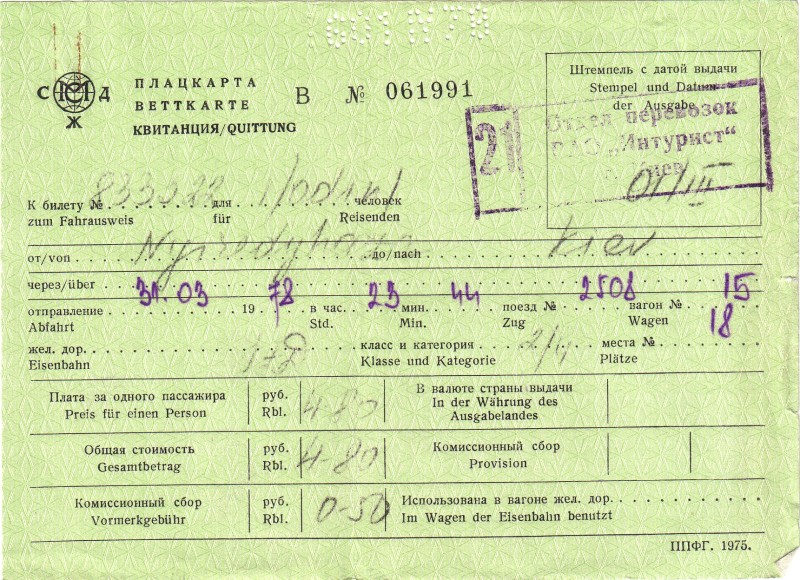 С М С Д
Ж
ПЛАЦКАРТА
BETTKARTE
КВИТАНЦИЯ/QUITTUNG
В № 061991
Штемпель с датой выдачи
Stempel und Datum
der Ausgabe
21
Отдел перевозок
ВАО „Интурист“
г. Киев
01/III
К билету № 833222 для 1/odin/ человек
zum Fahrausweis für Reisenden
от/von Nyiredyhaza до/nach Kiev
через/über
отправление 31.03 1978 в час. 23 мин. 44 поезд № 2508 вагон № 15
Abfahrt Std. Min. Zug Wagen
18
жел. дор. класс и категория 2/ места №
Eisenbahn Klasse und Kategorie Plätze
Плата за одного пассажира руб. 4-80 В валюте страны выдачи
Preis für einen Person Rbl. In der Währung des
Ausgabelandes
Общая стоимость руб. 4-80 Комиссионный сбор
Gesamtbetrag Rbl. Provision
Комиссионный сбор руб. 0-50 Использована в вагоне жел. дор.
Vormerkgebühr Rbl. Im Wagen der Eisenbahn benutzt
ППФГ. 1975.